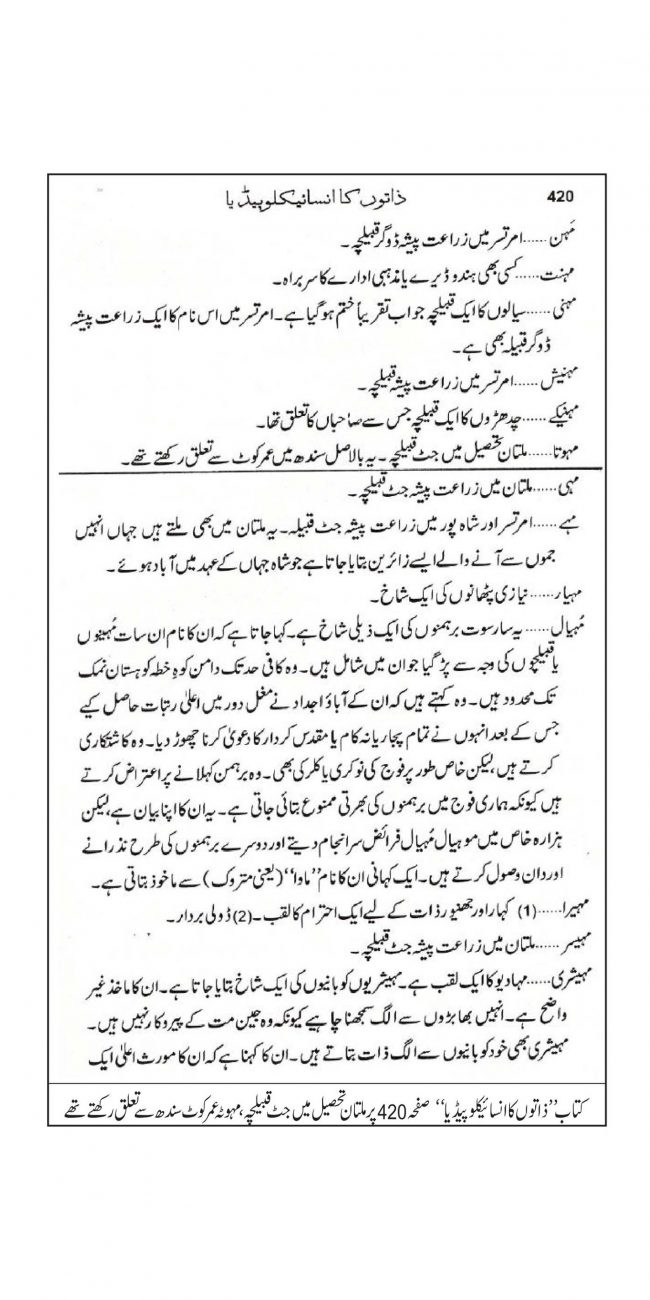 420
ذاتوں کا انسائیکلوپیڈیا
مَہن......امرتسر میں زراعت پیشہ ڈوگر قبیلچہ۔
مہنت......کسی بھی ہندو ڈیرے یا مذہبی ادارے کا سربراہ۔
مہنی......سیالوں کا ایک قبیلچہ جو اب تقریباً ختم ہو گیا ہے۔ امرتسر میں اس نام کا ایک زراعت پیشہ
ڈوگر قبیلہ بھی ہے۔
مہنیش......امرتسر میں زراعت پیشہ قبیلچہ۔
مہنیکے......چدھڑوں کا ایک قبیلچہ جس سے صاحباں کا تعلق تھا۔
مہوتا......ملتان تحصیل میں جٹ قبیلچہ۔ یہ بالاصل سندھ میں عمر کوٹ سے تعلق رکھتے تھے۔
مہی......ملتان میں زراعت پیشہ جٹ قبیلچہ۔
مہے......امرتسر اور شاہ پور میں زراعت پیشہ جٹ قبیلہ۔ یہ ملتان میں بھی ملتے ہیں جہاں انہیں
جموں سے آنے والے ایسے زائرین بتایا جاتا ہے جو شاہ جہاں کے عہد میں آباد ہوئے۔
مہیار......نیازی پٹھانوں کی ایک شاخ۔
مُہیال......یہ سارسوت برہمنوں کی ایک ذیلی شاخ ہے۔ کہا جاتا ہے کہ ان کا نام ان سات مُہینوں
یا قبیلچوں کی وجہ سے پڑ گیا جو ان میں شامل ہیں۔ وہ کافی حد تک دامن کوہِ خطہ کوہستان نمک
تک محدود ہیں۔ وہ کہتے ہیں کہ ان کے آباؤ اجداد نے مغل دور میں اعلیٰ رتبات حاصل کیے
جس کے بعد انہوں نے تمام پجاریانہ کام یا مقدس کردار کا دعویٰ کرنا چھوڑ دیا۔ وہ کاشتکاری
کرتے ہیں، لیکن خاص طور پر فوج کی نوکری یا کلرکی بھی۔ وہ برہمن کہلانے پر اعتراض کرتے
ہیں کیونکہ ہماری فوج میں برہمنوں کی بھرتی ممنوع بتائی جاتی ہے۔ یہ ان کا اپنا بیان ہے، لیکن
ہزارہ خاص میں موہیال مُہیال فرائض سرانجام دیتے اور دوسرے برہمنوں کی طرح نذرانے
اور دان وصول کرتے ہیں۔ ایک کہانی ان کا نام ”ماوا“ (یعنی متروک) سے ماخوذ بتاتی ہے۔
مہیرا......(1) کہار اور جھنیور ذات کے لیے ایک احترام کا لقب۔ (2) ڈولی بردار۔
مہیسر......ملتان میں زراعت پیشہ جٹ قبیلچہ۔
مہیشری......مہادیو کا ایک لقب ہے۔ مہیشریوں کو بانیوں کی ایک شاخ بتایا جاتا ہے۔ ان کا ماخذ غیر
واضح ہے۔ انہیں بھابڑوں سے الگ سمجھنا چاہیے کیونکہ وہ جین مت کے پیروکار نہیں ہیں۔
مہیشری بھی خود کو بانیوں سے الگ ذات بتاتے ہیں۔ ان کا کہنا ہے کہ ان کا مورث اعلیٰ ایک
کتاب ”ذاتوں کا انسائیکلوپیڈیا“ صفحہ 420 پر ملتان تحصیل میں جٹ قبیلچہ، مہوٹہ عمر کوٹ سندھ سے تعلق رکھتے تھے